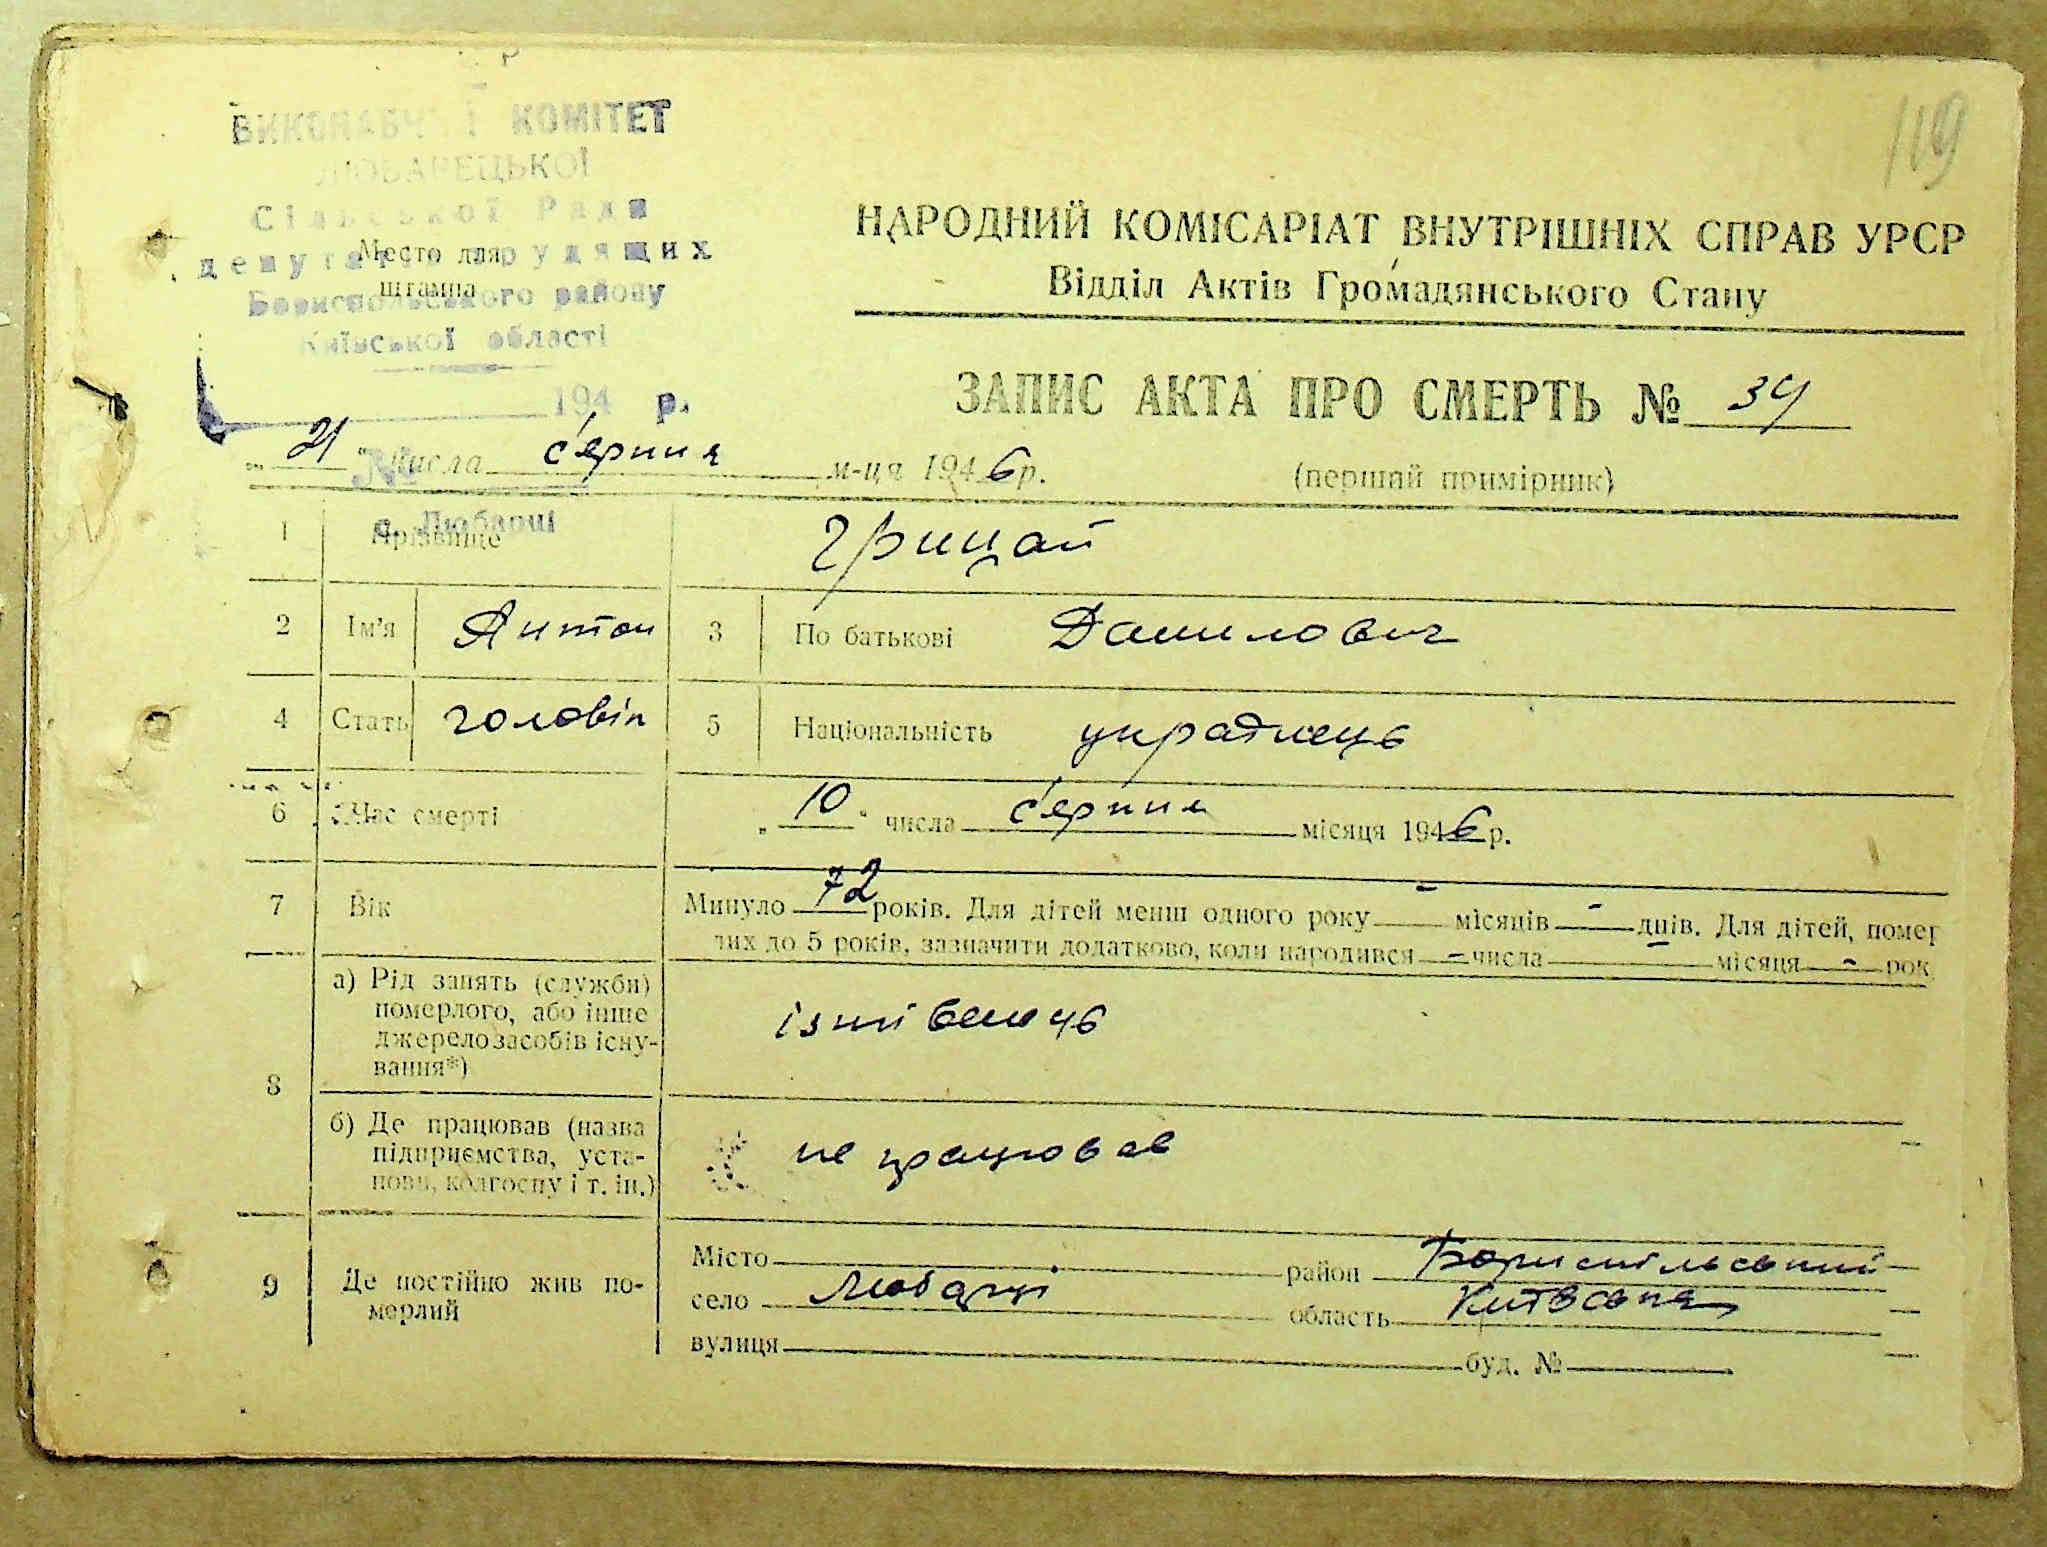 119
ВИКОНАВЧИЙ КОМІТЕТ
ЛЮБАРЕЦЬКОЇ
Сільської Ради
депутатів трудящих
Бориспольського району
Київської області
194 р.
№
с. Любарці
Место для
штампа
НАРОДНИЙ КОМІСАРІАТ ВНУТРІШНІХ СПРАВ УРСР
Відділ Актів Громадянського Стану
ЗАПИС АКТА ПРО СМЕРТЬ № 34
„ 21 " числа серпня м-ця 1946 р.
(перший примірник)
1 Прізвище Грицай
2 Ім'я Антон 3 По батькові Данилович
4 Стать чоловік 5 Національність українець
6 Час смерті „ 10 " числа серпня місяця 1946 р.
7 Вік Минуло 72 років. Для дітей менш одного року - місяців - днів. Для дітей, помер
лих до 5 років, зазначити додатково, коли народився - числа - місяця - рок
8 а) Рід занять (служби)
померлого, або інше
джерело засобів існу-
вання*)
б) Де працював (назва
підприємства, уста-
нови, колгоспу і т. ін.)
не працював
9 Де постійно жив по-
мерлий
Місто район Бориспільський
село Любарці область Київська
вулиця буд. №